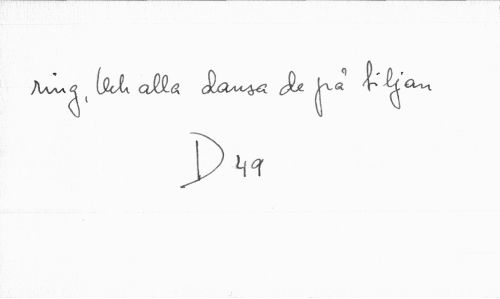 ring, Och alla dansa de på tiljan
D 49